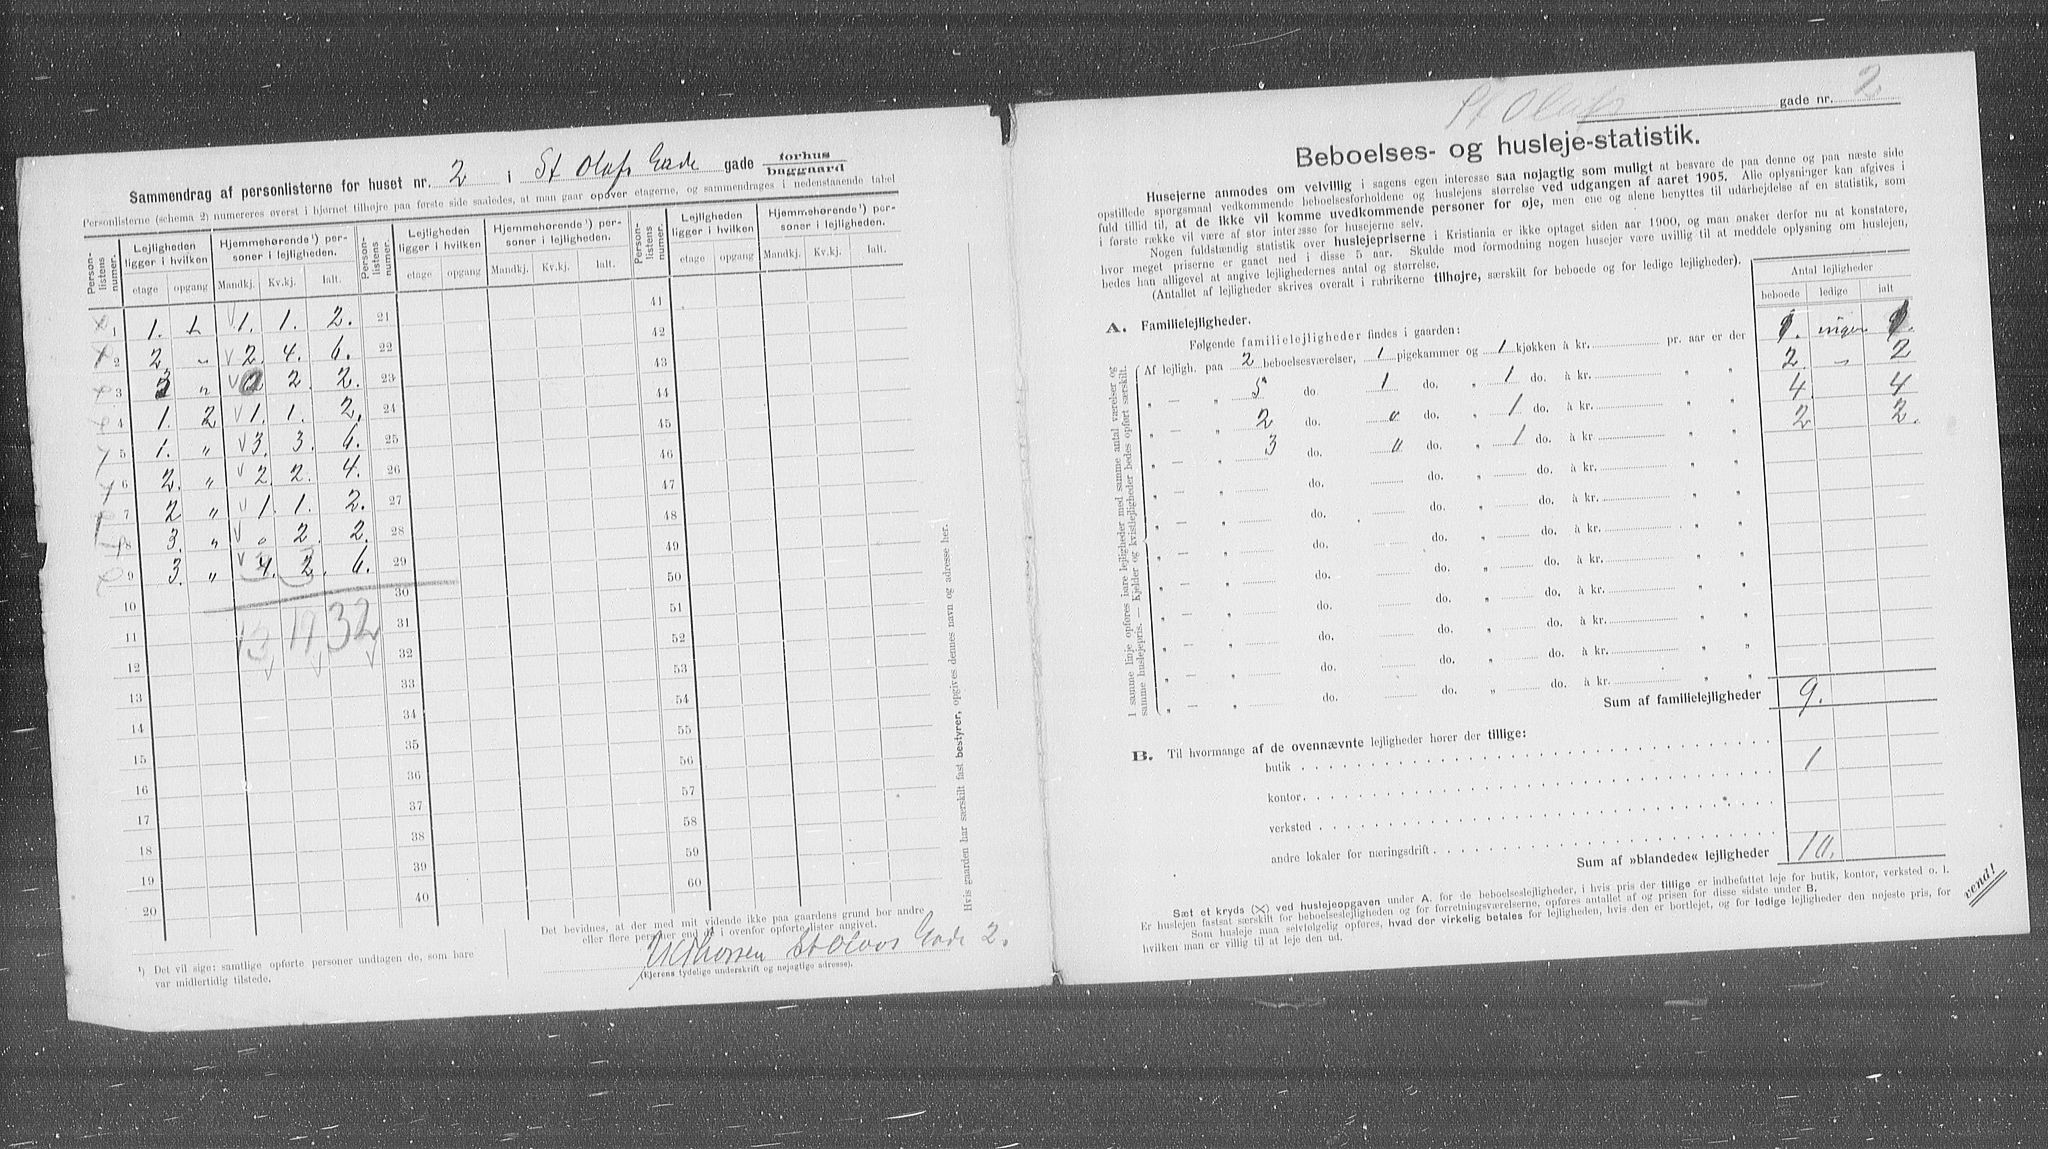 Sammendrag af personlisterne for huset nr. 2 i St Olafs Gade gade forhus baggaard
Personlisterne (schema 2) numereres øverst i hjørnet tilhøjre paa første side saaledes, at man gaar opover etagerne, og sammendrages i nedenstaaende tabel
Person-listens numer. Lejligheden ligger i hvilken Hjemmehørende ¹) personer i lejligheden. Person-listens numer. Lejligheden ligger i hvilken Hjemmehørende ¹) personer i lejligheden. Person-listens numer. Lejligheden ligger i hvilken Hjemmehørende ¹) personer i lejligheden.
etage opgang Mandkj. Kv.kj. Ialt. etage opgang Mandkj. Kv.kj. Ialt. etage opgang Mandkj. Kv.kj. Ialt.
1 1. 1. 1. 1. 2. 21 41
2 2. „ 2. 4. 6. 22 42
3 3 „ 0 2. 2. 23 43
4 1. 2 1. 1. 2. 24 44
5 1. „ 3. 3. 6. 25 45
6 2. „ 2 2. 4. 26 46
7 2 „ 1. 1. 2. 27 47
8 3. „ 0 2. 2. 28 48
9 3. „ 4. 2. 6. 29 49
10 30 50
11 13 17 32 31 51
12 32 52
13 33 53
14 34 54
15 35 55
16 36 56
17 37 57
18 38 58
19 39 59
20 40 60
¹) Det vil sige: samtlige opførte personer undtagen de, som bare
var midlertidig tilstede.
Det bevidnes, at der med mit vidende ikke paa gaardens grund bor andre
eller flere personer end de i ovenfor opførte lister angivet.
Thorsen St Olavs Gade 2.
(Ejerens tydelige underskrift og nøjagtige adresse).
Hvis gaarden har særskilt fast bestyrer, opgives dennes navn og adresse her.
St Olafs gade nr. 2
Beboelses- og husleje-statistik.
Husejerne anmodes om velvillig i sagens egen interesse saa nøjagtig som muligt at besvare de paa denne og paa næste side
opstillede spørgsmaal vedkommende beboelsesforholdene og huslejens størrelse ved udgangen af aaret 1905. Alle oplysninger kan afgives i
fuld tillid til, at de ikke vil komme uvedkommende personer for øje, men ene og alene benyttes til udarbejdelse af en statistik, som
i første række vil være af stor interesse for husejerne selv.
Nogen fuldstændig statistik over huslejepriserne i Kristiania er ikke optaget siden aar 1900, og man ønsker derfor nu at konstatere,
hvor meget priserne er gaaet ned i disse 5 aar. Skulde mod formodning nogen husejer være uvillig til at meddele oplysning om huslejen,
bedes han alligevel at angive lejlighedernes antal og størrelse.
(Antallet af lejligheder skrives overalt i rubrikerne tilhøjre, særskilt for beboede og for ledige lejligheder).
Antal lejligheder
beboede ledige ialt
A. Familielejligheder.
Følgende familielejligheder findes i gaarden:
Af lejligh. paa 2 beboelsesværelser, 1 pigekammer og 1 kjøkken à kr. pr. aar er der 1. ingen 1.
„ — „ 5 do. 1 do. „ 1 do. à kr. „ „ 2. „ 2
„ — „ 2 do. 0 do. „ 1 do. à kr. „ „ 4. 4
„ — „ 3 do. 0 do. „ 1 do. à kr. „ „ 2 2.
„ — „ do. do. „ do. à kr. „ „
„ — „ do. do. „ do. à kr. „ „
„ — „ do. do. „ do. à kr. „ „
„ — „ do. do. „ do. à kr. „ „
„ — „ do. do. „ do. à kr. „ „
„ — „ do. do. „ do. à kr. „ „
„ — „ do. do. „ do. à kr. „ „
„ — „ do. do. „ do. à kr. „ „
I samme linje opføres bare lejligheder med samme antal værelser og
samme huslejepris. — Kjelder og kvistlejligheder bedes opført særskilt.
Sum af familielejligheder 9.
B. Til hvormange af de ovennævnte lejligheder hører der tillige:
butik 1
kontor
verksted
andre lokaler for næringsdrift
Sum af »blandede« lejligheder 10.
Sæt et kryds (X) ved huslejeopgaven under A. for de beboelseslejligheder, i hvis pris der tillige er indbefattet leje for butik, kontor, verksted o. l.
Er huslejen fastsat særskilt for beboelseslejligheder og for forretningsværelserne, opføres antallet af og prisen for disse sidste under B.
Som husleje maa selvfølgelig opføres, hvad der virkelig betales for lejligheden, hvis den er bortlejet, og for ledige lejligheder den nøjeste pris, for
hvilken man er villig til at leje den ud.
vend!